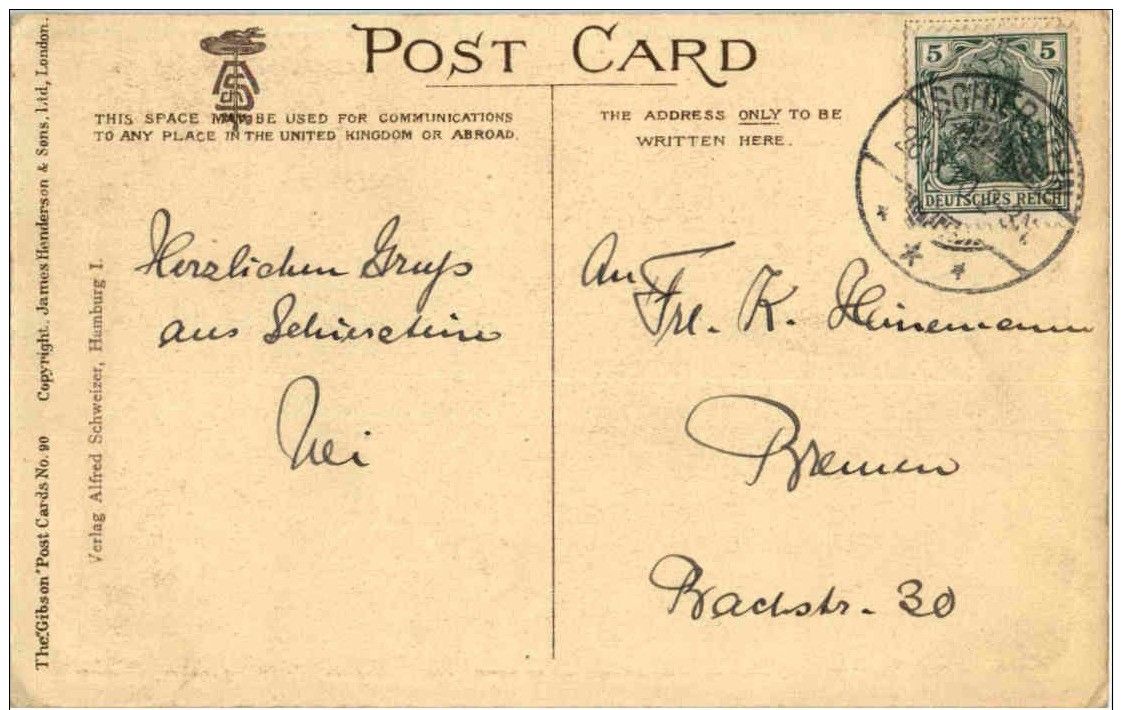 POST CARD
THIS SPACE MAY BE USED FOR COMMUNICATIONS
TO ANY PLACE IN THE UNITED KINGDOM OR ABROAD.
THE ADDRESS ONLY TO BE
WRITTEN HERE.
5 5
DEUTSCHES REICH
Herzlichen Gruß
aus Schierstein
An
Frl. K. Heinemann
Bremen
Bachstr. 30
The "Gibson" Post Cards No. 90 Copyright, James Henderson & Sons, Ltd, London.
Verlag Alfred Schweizer, Hamburg I.